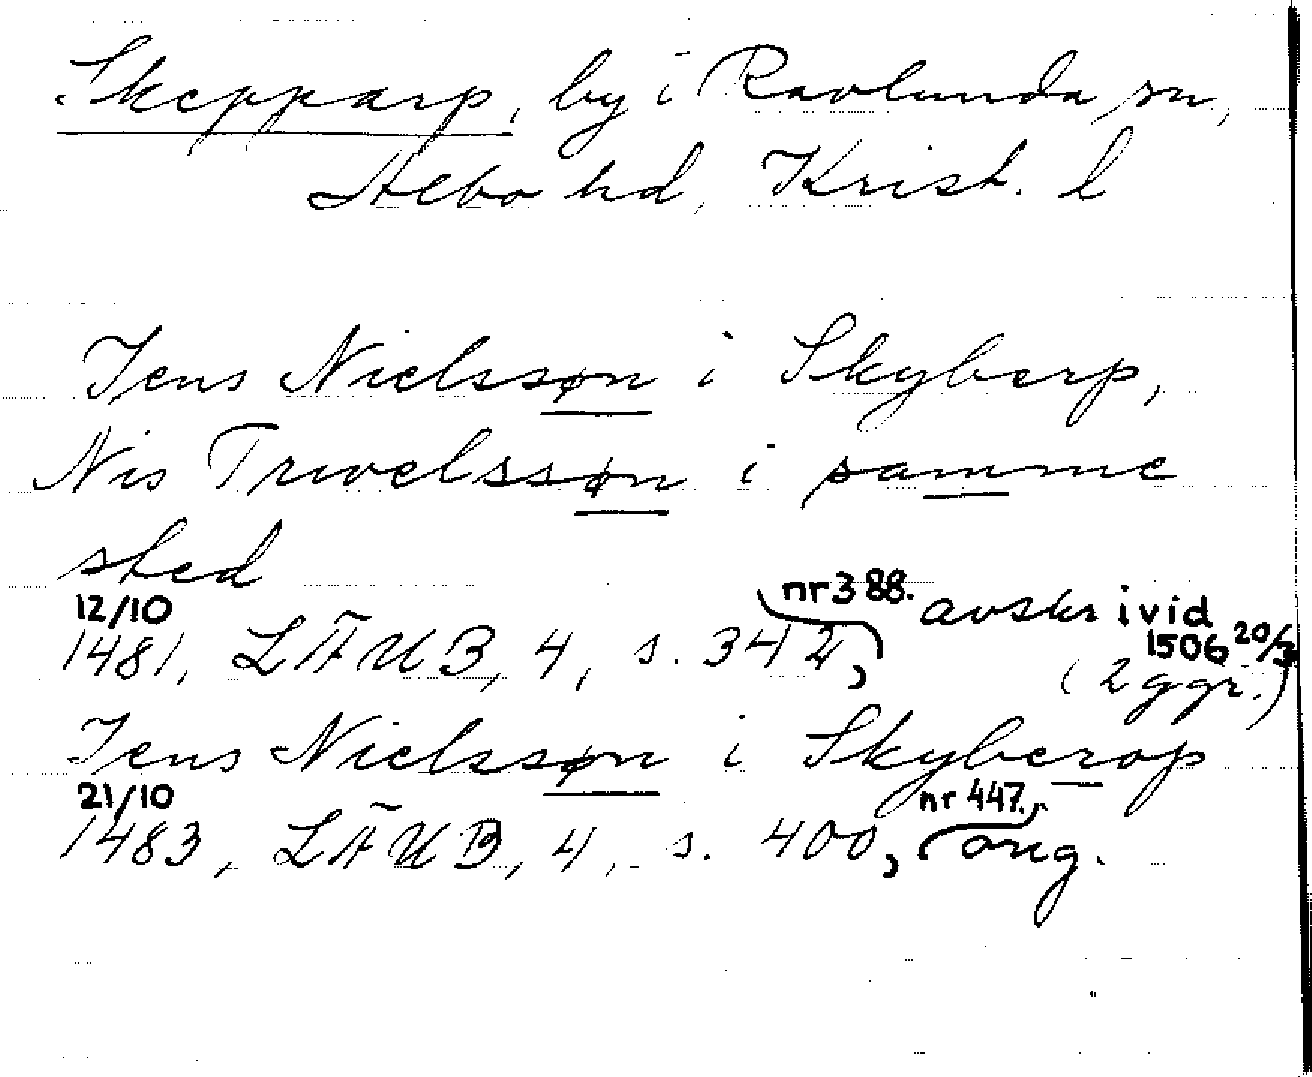 Skepparp, by i Ravlunda sn,
Albo hd, Krist. l
Jens Nielssøn i Skyberp,
Nis Trwelssøn i samme
sted
12/10
1481, LÄUB, 4, s. 342, nr 388. avskr i vid
1506 20/3
(2 ggr.)
Jens Nielssøn i Skyberop
21/10
1483, LÄUB, 4, s. 400, nr 447., orig.